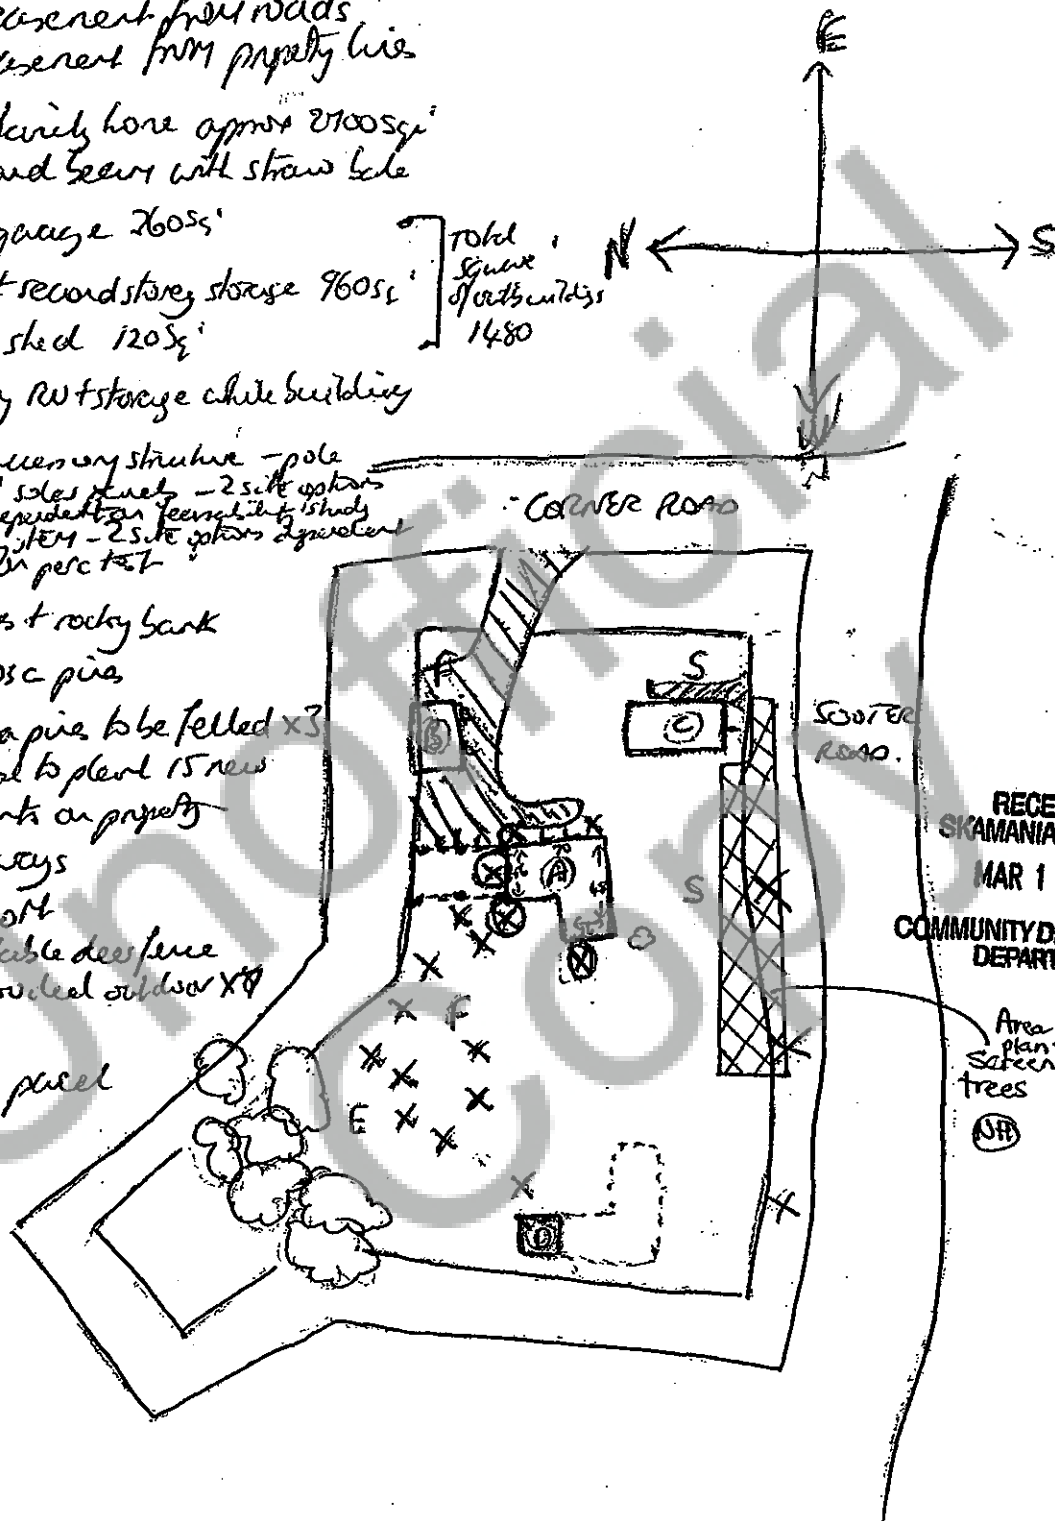 easement from roads
easement from property lines
family home approx 2700sq'
and beam with straw bale
garage 260sq'
+ second storey storage 960sq'
shed 120sq'
Total
square
of outbuildings
1480
RV + storage while building
accessory structure - pole
solar panels - 2 site options
dependent on feasibility study
system - 2 site options dependent
on perc test
+ rocky bank
pines
pines to be felled x3
to plant 15 new
on property
deer fence
outdoor
parcel
E
N
S
W
CORNER ROAD
SOOTER
ROAD.
S
C
B
A
S
F
E
D
RECE
SKAMANIA
MAR 1
COMMUNITY D
DEPART
Area
plan
Screen
trees
NH
Unofficial
Copy